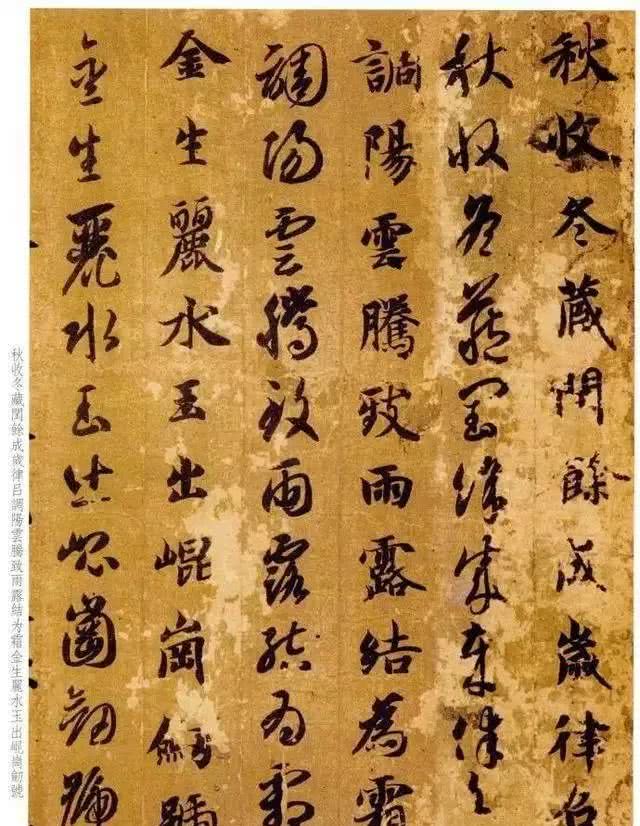 秋收冬藏閏餘成歲律呂
秋收冬藏閏餘成歲律呂
調陽雲騰致雨露結為霜
調陽雲騰致雨露結為霜
金生麗水玉出崐崗劎號
金生麗水玉出崐崗劎號
秋收冬藏閏餘成歲律呂調陽雲騰致雨露結为霜金生麗水玉出崐崗劎號